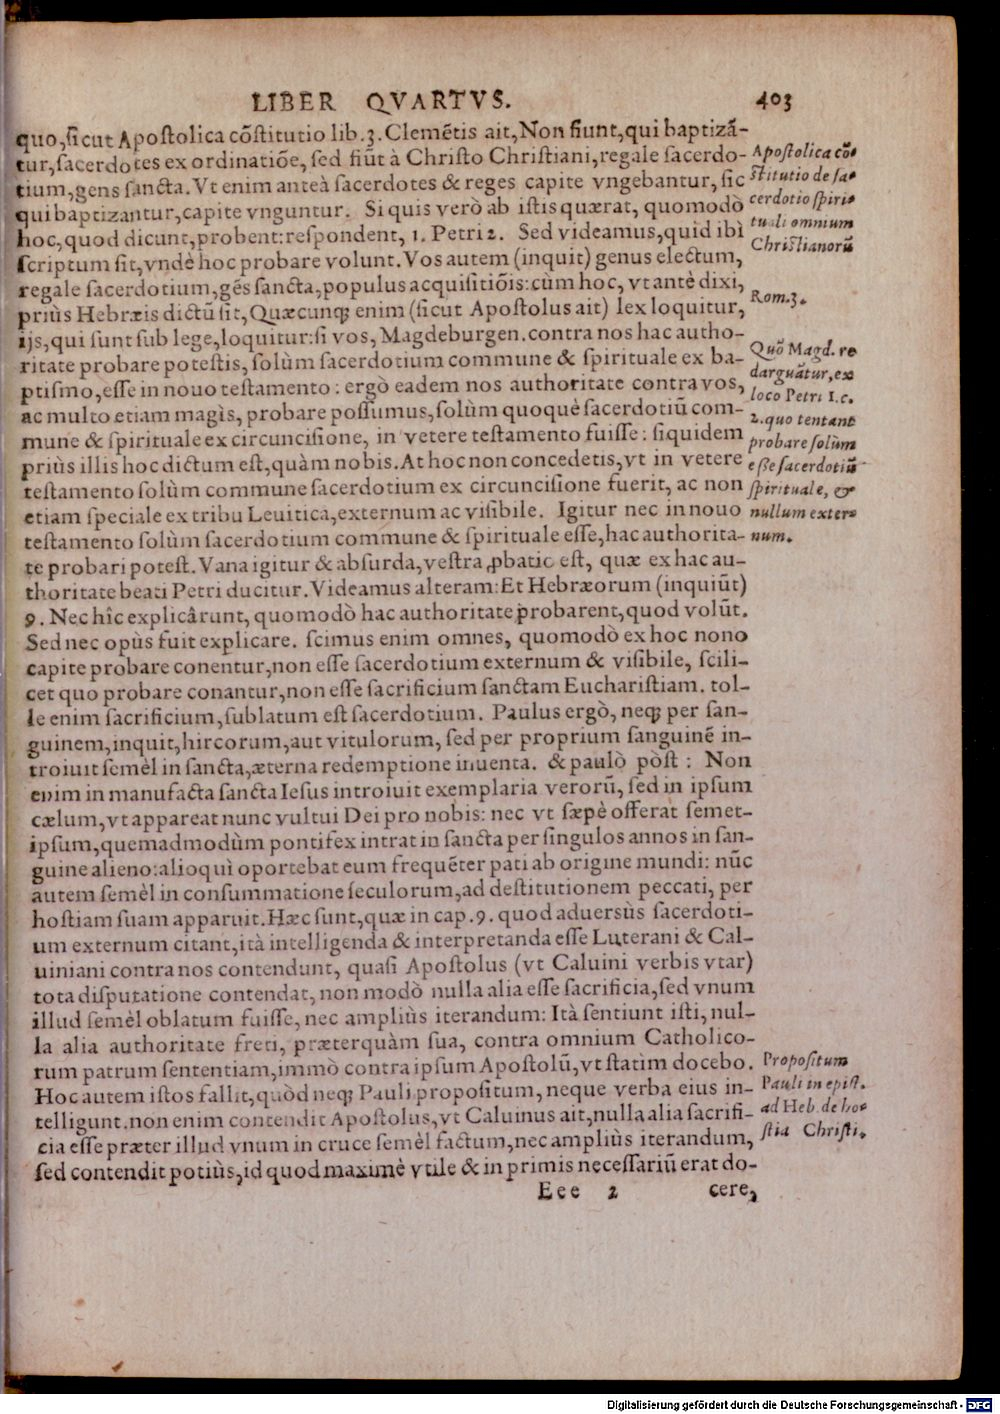 LIBER QVARTVS. 403
quo,ſicut Apoſtolica cõſtitutio lib.3.Clemẽtis ait,Non fiunt,qui baptizã-
tur,ſacerdotes ex ordinatiõe, ſed fiũt à Chriſto Chriſtiani,regale ſacerdo-
tium,gens ſancta.Vt enim anteà ſacerdotes & reges capite vngebantur, ſic
qui baptizantur,capite vnguntur. Si quis verò ab iſtis quærat, quomodò
hoc,quod dicunt,probent:reſpondent, 1. Petri 2. Sed videamus,quid ibì
ſcriptum ſit,vndè hoc probare volunt.Vos autem (inquit) genus electum,
regale ſacerdotium,gẽs ſancta,populus acquiſitiõis:cùm hoc, vt antè dixi,
priùs Hebræis dictũ ſit, Quæcunq; enim (ſicut Apoſtolus ait) lex loquitur,
ijs,qui ſunt ſub lege,loquitur:ſi vos, Magdeburgen.contra nos hac autho-
ritate probare poteſtis, ſolùm ſacerdotium commune & ſpirituale ex ba-
ptiſmo,eſſe in nouo teſtamento : ergò eadem nos authoritate contra vos,
ac multo etiam magìs, probare poſſumus,ſolùm quoquè ſacerdotiũ com-
mune & ſpirituale ex circunciſione, in vetere teſtamento fuiſſe: ſiquidem
priùs illis hoc dictum eſt,quàm nobis.At hoc non concedetis,vt in vetere
teſtamento ſolùm commune ſacerdotium ex circunciſione fuerit, ac non
etiam ſpeciale ex tribu Leuitica,externum ac viſibile. Igitur nec in nouo
teſtamento ſolùm ſacerdotium commune & ſpirituale eſſe,hac authorita-
te probari poteſt.Vana igitur & abſurda,veſtra ꝓbatio eſt, quæ ex hac au-
thoritate beati Petri ducitur.Videamus alteram:Et Hebræorum (inquiũt)
9. Nec hîc explicârunt, quomodò hac authoritate probarent,quod volũt.
Sed nec opùs fuit explicare. ſcimus enim omnes, quomodò ex hoc nono
capite probare conentur,non eſſe ſacerdotium externum & viſibile, ſcili-
cet quo probare conantur,non eſſe ſacrificium ſanctam Euchariſtiam. tol-
le enim ſacrificium,ſublatum eſt ſacerdotium. Paulus ergò, neq; per ſan-
guinem,inquit,hircorum,aut vitulorum, ſed per proprium ſanguinẽ in-
troiuit ſemèl in ſancta,æterna redemptione inuenta. & paulò pòſt : Non
enim in manufacta ſancta Ieſus introiuit exemplaria verorũ, ſed in ipſum
cælum,vt appareat nunc vultui Dei pro nobis: nec vt ſæpè offerat ſemet-
ipſum,quemadmodùm pontifex intrat in ſancta per ſingulos annos in ſan-
guine alieno:alioquì oportebat eum frequẽter pati ab origine mundi: nũc
autem ſemèl in conſummatione ſeculorum,ad deſtitutionem peccati, per
hoſtiam ſuam apparuit.Hæc ſunt,quæ in cap.9. quod aduersùs ſacerdoti-
um externum citant,ità intelligenda & interpretanda eſſe Luterani & Cal-
uiniani contra nos contendunt, quaſi Apoſtolus (vt Caluini verbis vtar)
tota diſputatione contendat, non modò nulla alia eſſe ſacrificia,ſed vnum
illud ſemèl oblatum fuiſſe, nec ampliùs iterandum: Ità ſentiunt iſti, nul-
la alia authoritate freti, præterquàm ſua, contra omnium Catholico-
rum patrum ſententiam,immò contra ipſum Apoſtolũ,vt ſtatìm docebo.
Hoc autem iſtos fallit,quòd neq; Pauli propoſitum, neque verba eius in-
telligunt.non enim contendit Apoſtolus,vt Caluinus ait,nulla alia ſacrifi-
cia eſſe præter illud vnum in cruce ſemèl factum,nec ampliùs iterandum,
ſed contendit potiùs,id quod maximè vtile & in primis neceſſariũ erat do-
Eee 2 cere,
Apoſtolica cõ-
ſtitutio de ſa-
cerdotio ſpiri-
tuali omnium
Chriſtianorũ
Rom.3.
Quõ Magd. re
darguãtur,ex
loco Petri 1.c.
2.quo tentant
probare ſolùm
eſſe ſacerdotiũ
ſpirituale, &
nullum exter-
num.
Propoſitum
Pauli in epiſt.
ad Heb. de ho-
ſtia Chriſti.
Digitalisierung gefördert durch die Deutsche Forschungsgemeinschaft - DFG